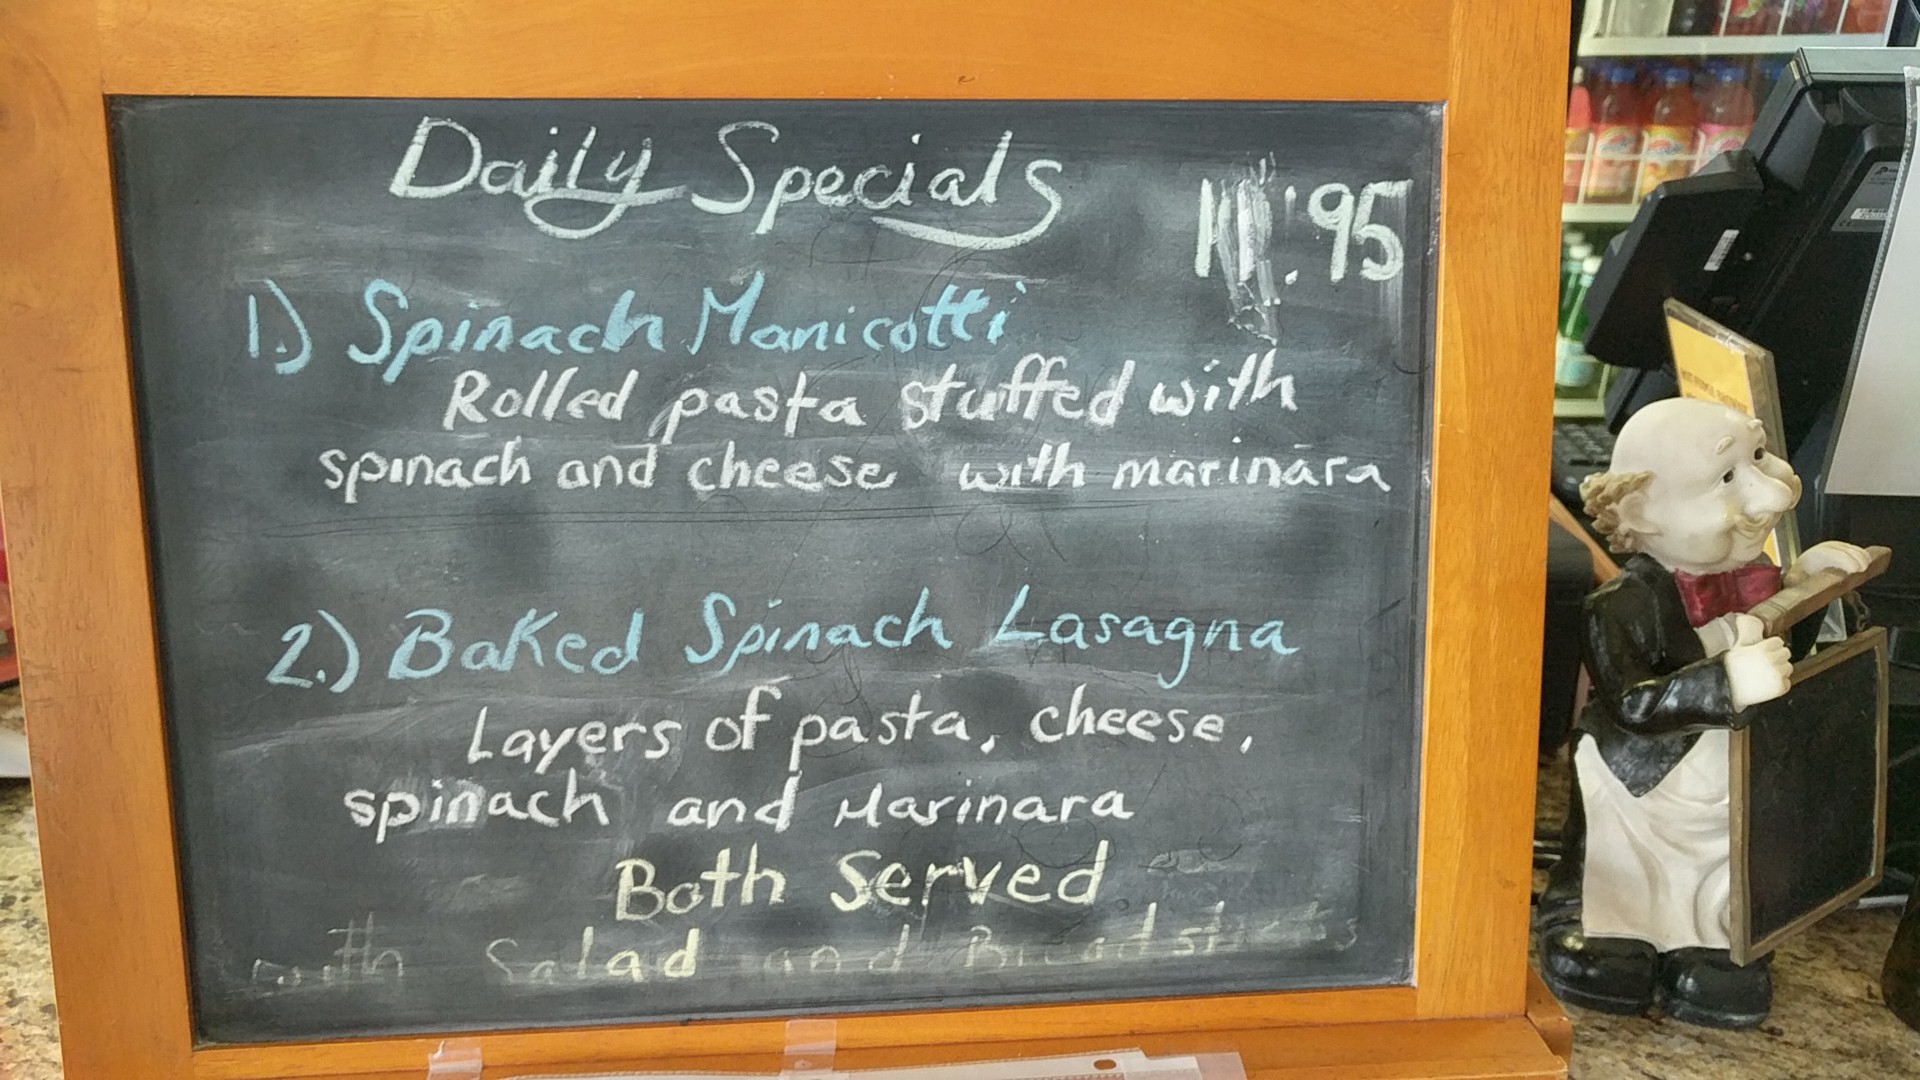 Daily Specials
11.95
1.) Spinach Manicotti
Rolled pasta stuffed with
spinach and cheese with marinara
2.) Baked Spinach Lasagna
Layers of pasta, cheese,
spinach and Marinara
Both Served
with Salad and Breadsticks